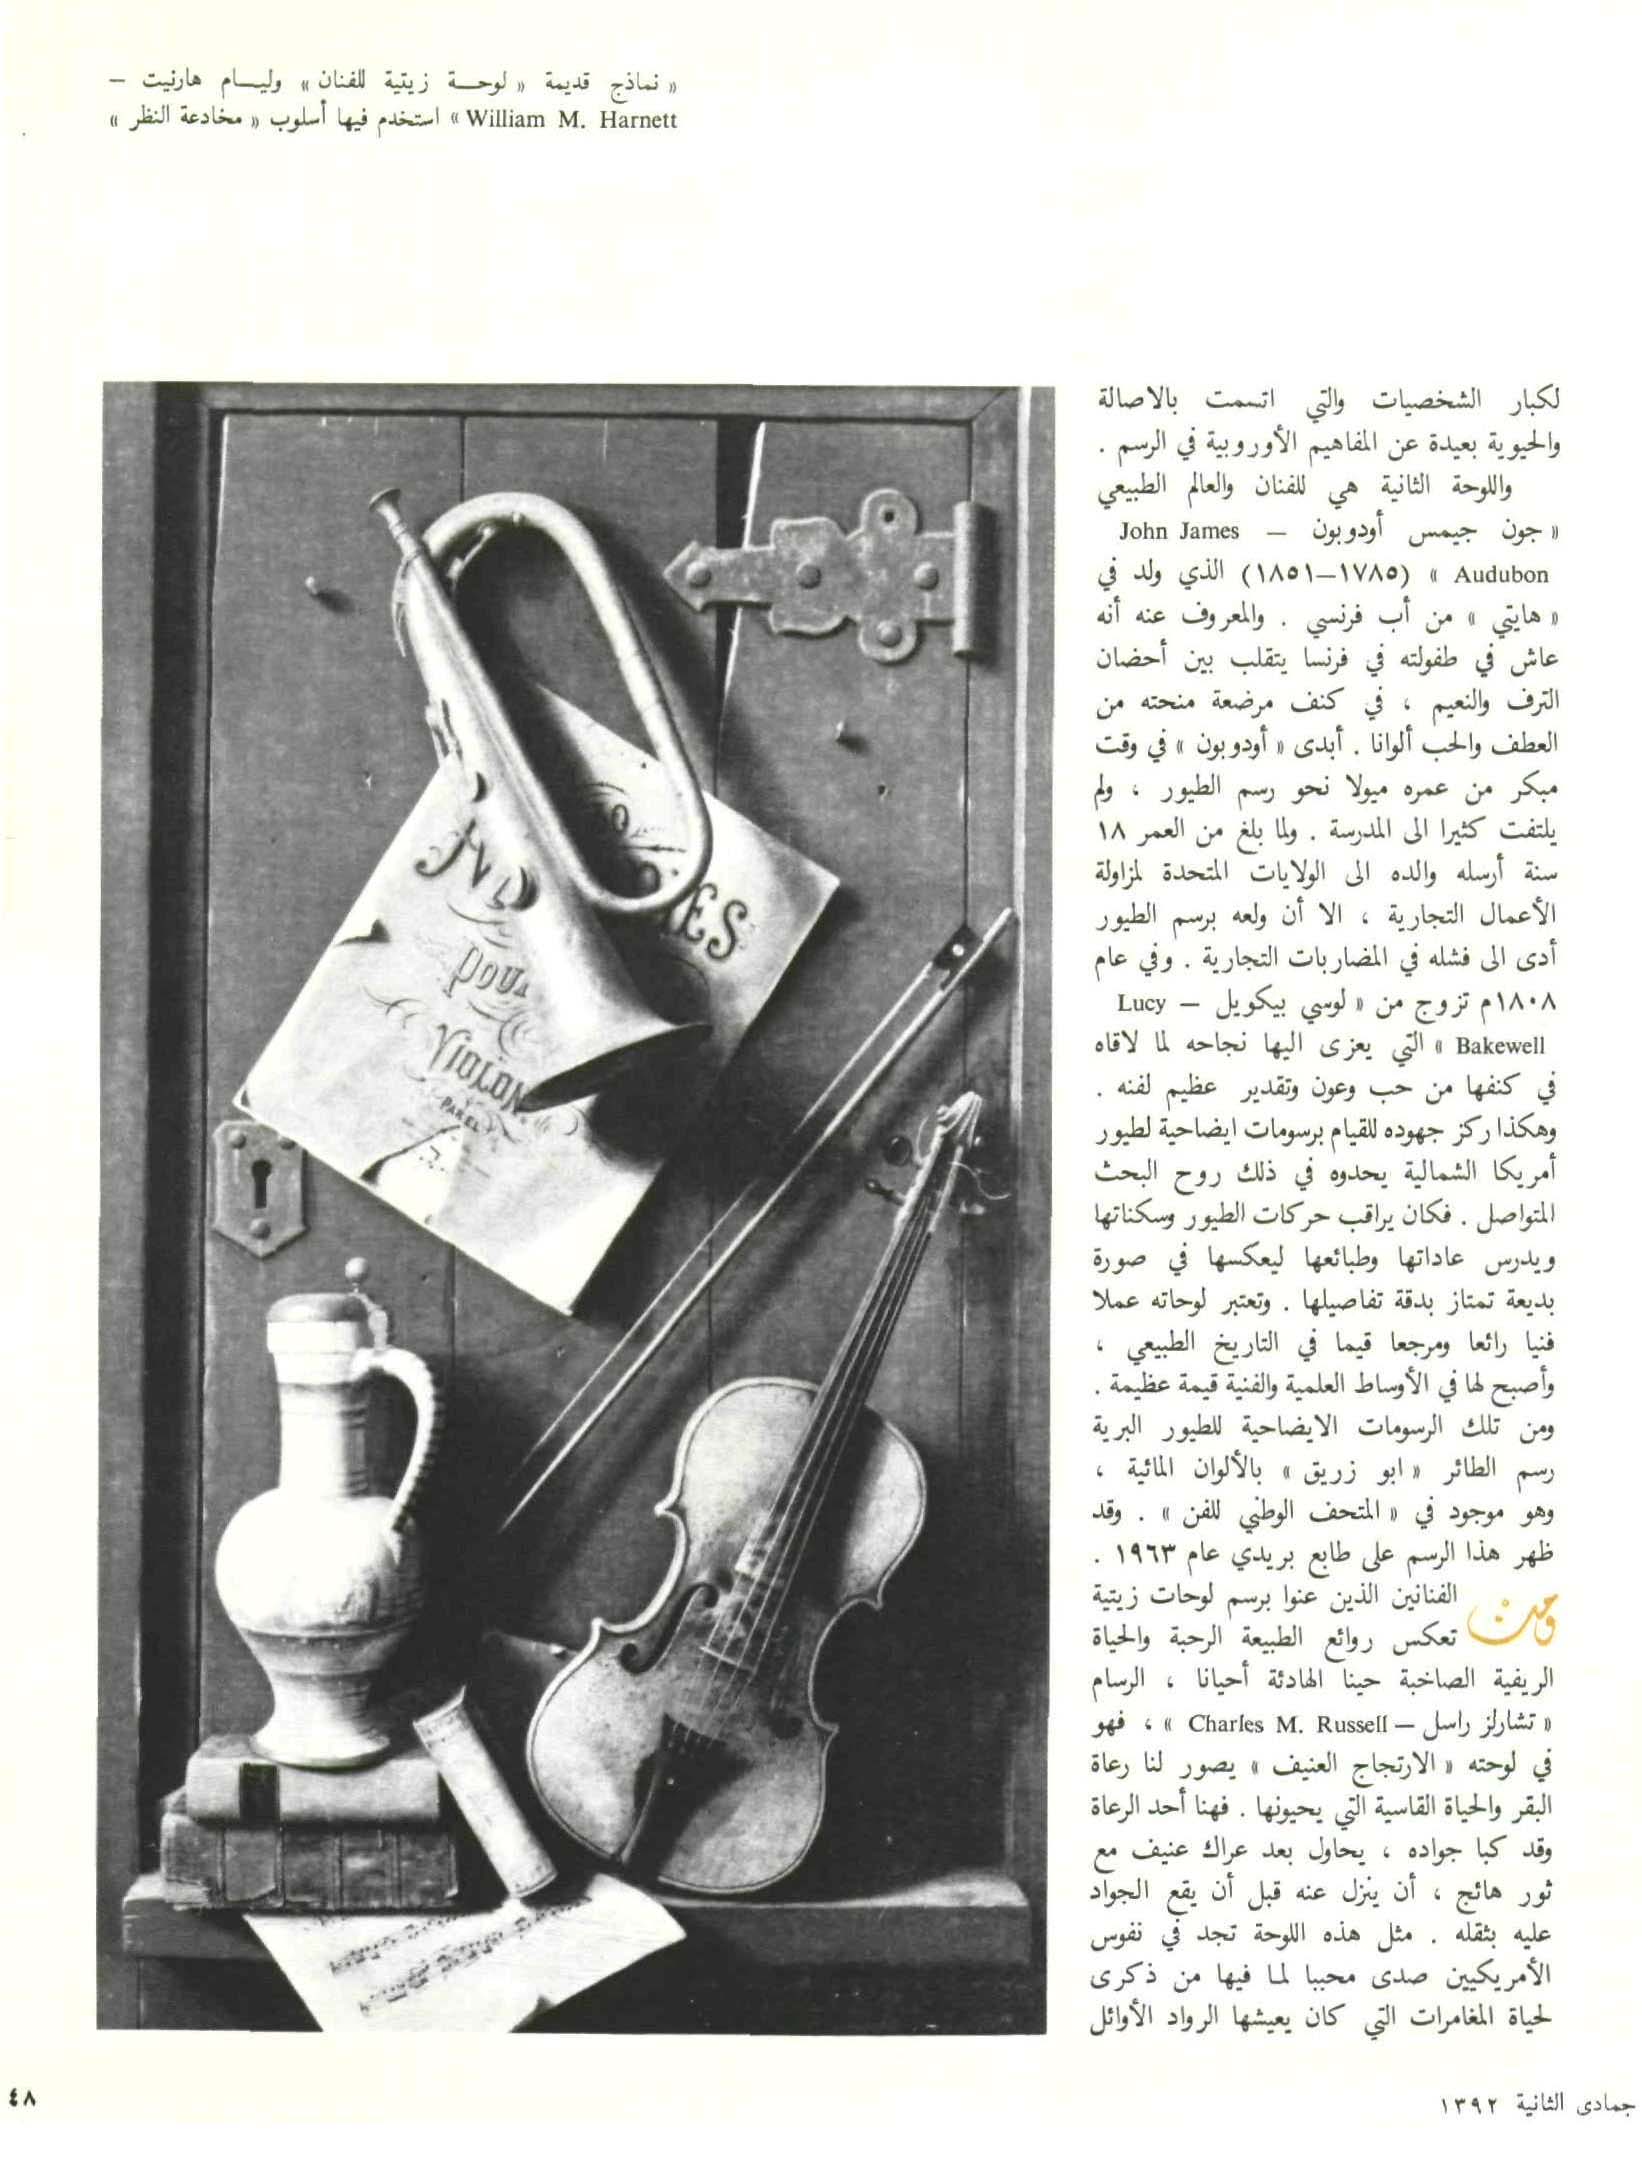 « نماذج قديمة « لوحة زيتية للفنان » وليام هارنيت –
William M. Harnett » استخدم فيها أسلوب « مخادعة النظر »
لكبار الشخصيات والتي اتسمت بالاصالة
والحيوية بعيدة عن المفاهيم الأوروبية في الرسم .
واللوحة الثانية هي للفنان والعالم الطبيعي
« جون جيمس أودوبون — John James
Audubon » (١٧٨٥–١٨٥١) الذي ولد في
« هايتي » من أب فرنسي . والمعروف عنه أنه
عاش في طفولته في فرنسا يتقلب بين أحضان
الترف والنعيم ، في كنف مرضعة منحته من
العطف والحب ألوانا . أبدى « أودوبون » في وقت
مبكر من عمره ميولا نحو رسم الطيور ، ولم
يلتفت كثيرا الى المدرسة . ولما بلغ من العمر ١٨
سنة أرسله والده الى الولايات المتحدة لمزاولة
الأعمال التجارية ، الا أن ولعه برسم الطيور
أدى الى فشله في المضاربات التجارية . وفي عام
١٨٠٨م تزوج من « لوسي بيكويل — Lucy
Bakewell » التي يعزى اليها نجاحه لما لاقاه
في كنفها من حب وعون وتقدير عظيم لفنه .
وهكذا ركز جهوده للقيام برسومات ايضاحية لطيور
أمريكا الشمالية يحدوه في ذلك روح البحث
المتواصل . فكان يراقب حركات الطيور وسكناتها
ويدرس عاداتها وطبائعها ليعكسها في صورة
بديعة تمتاز بدقة تفاصيلها . وتعتبر لوحاته عملا
فنيا رائعا ومرجعا قيما في التاريخ الطبيعي ،
وأصبح لها في الأوساط العلمية والفنية قيمة عظيمة .
ومن تلك الرسومات الايضاحية للطيور البرية
رسم الطائر « ابو زريق » بالألوان المائية ،
وهو موجود في « المتحف الوطني للفن » . وقد
ظهر هذا الرسم على طابع بريدي عام ١٩٦٣ .
ومن الفنانين الذين عنوا برسم لوحات زيتية
تعكس روائع الطبيعة الرحبة والحياة
الريفية الصاخبة حينا الهادئة أحيانا ، الرسام
« تشارلز راسل — Charles M. Russell » ، فهو
في لوحته « الارتجاج العنيف » يصور لنا رعاة
البقر والحياة القاسية التي يحيونها . فهنا أحد الرعاة
وقد كبا جواده ، يحاول بعد عراك عنيف مع
ثور هائج ، أن ينزل عنه قبل أن يقع الجواد
عليه بثقله . مثل هذه اللوحة تجد في نفوس
الأمريكيين صدى محببا لما فيها من ذكرى
لحياة المغامرات التي كان يعيشها الرواد الأوائل
POUR
VIOLON
جمادى الثانية ١٣٩٢
٤٨